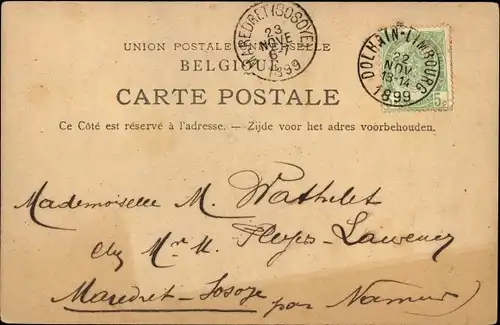 UNION POSTALE UNIVERSELLE
BELGIQUE
MAREDRET (SOSOYE)
23
NOVE
6
1899
DOLHAIN-LIMBOURG
22
NOV
13-14
1899
5c
CARTE POSTALE
Ce Côté est réservé à l'adresse. — Zijde voor het adres voorbehouden.
Mademoiselle M. Wathelet
chez Mr. M.
Maredret-Sosoye par Namur